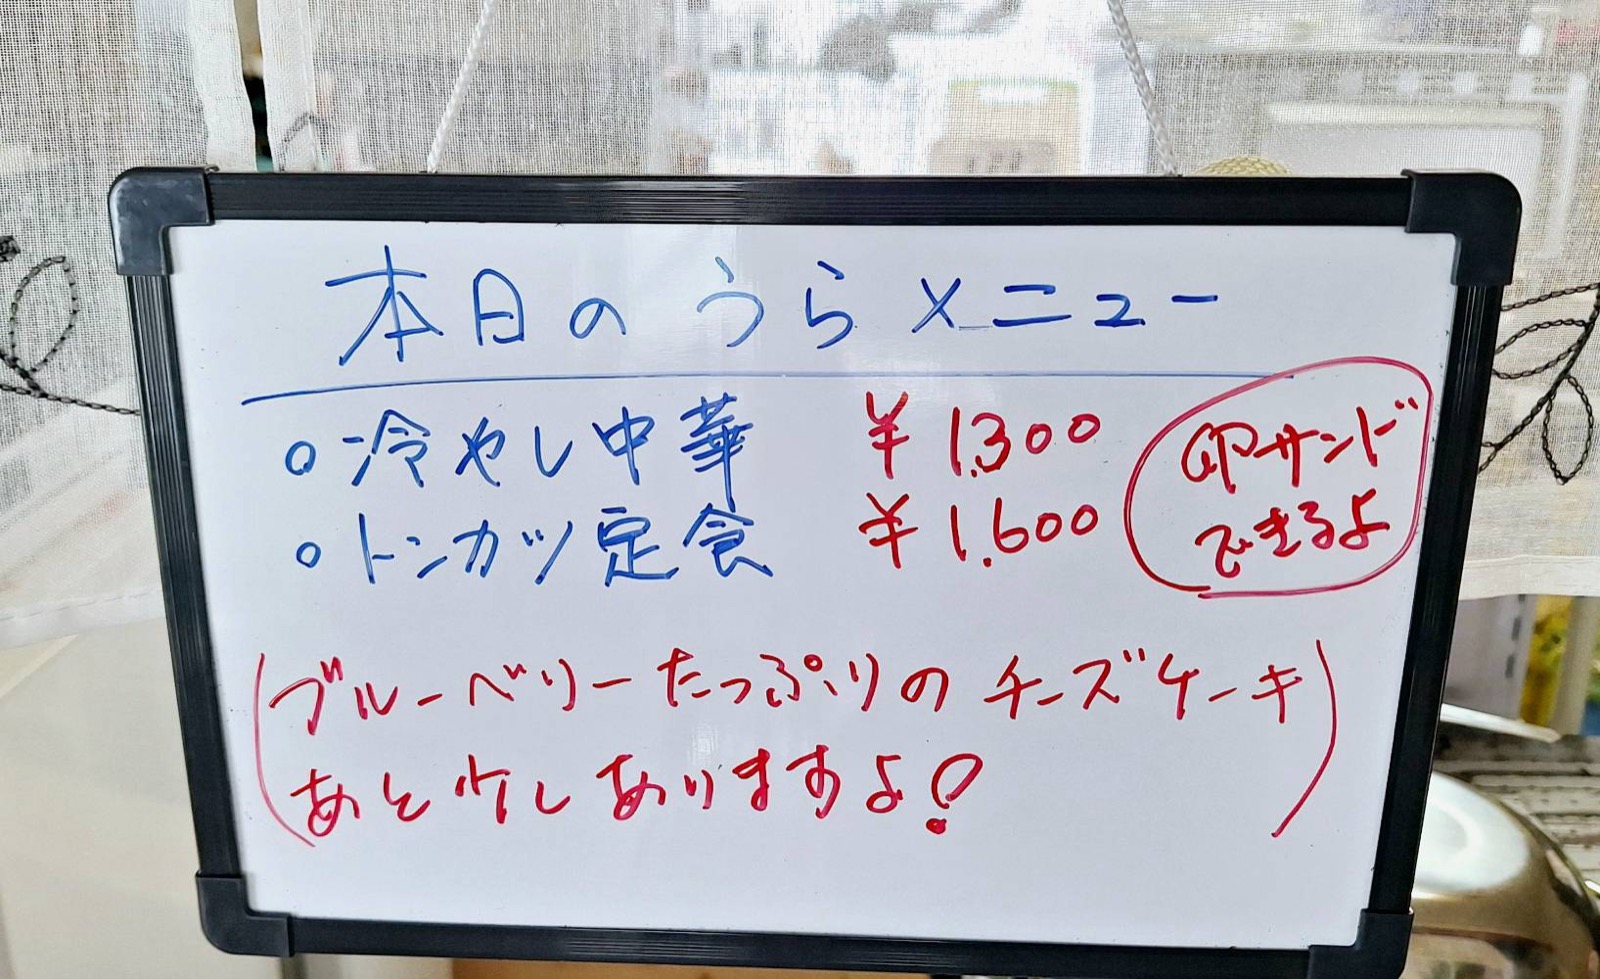 本日のうらメニュー
○冷やし中華 ¥1.300
○トンカツ定食 ¥1.600
卵サンド
できるよ
(ブルーベリーたっぷりのチーズケーキ
あと少しありますよ!)